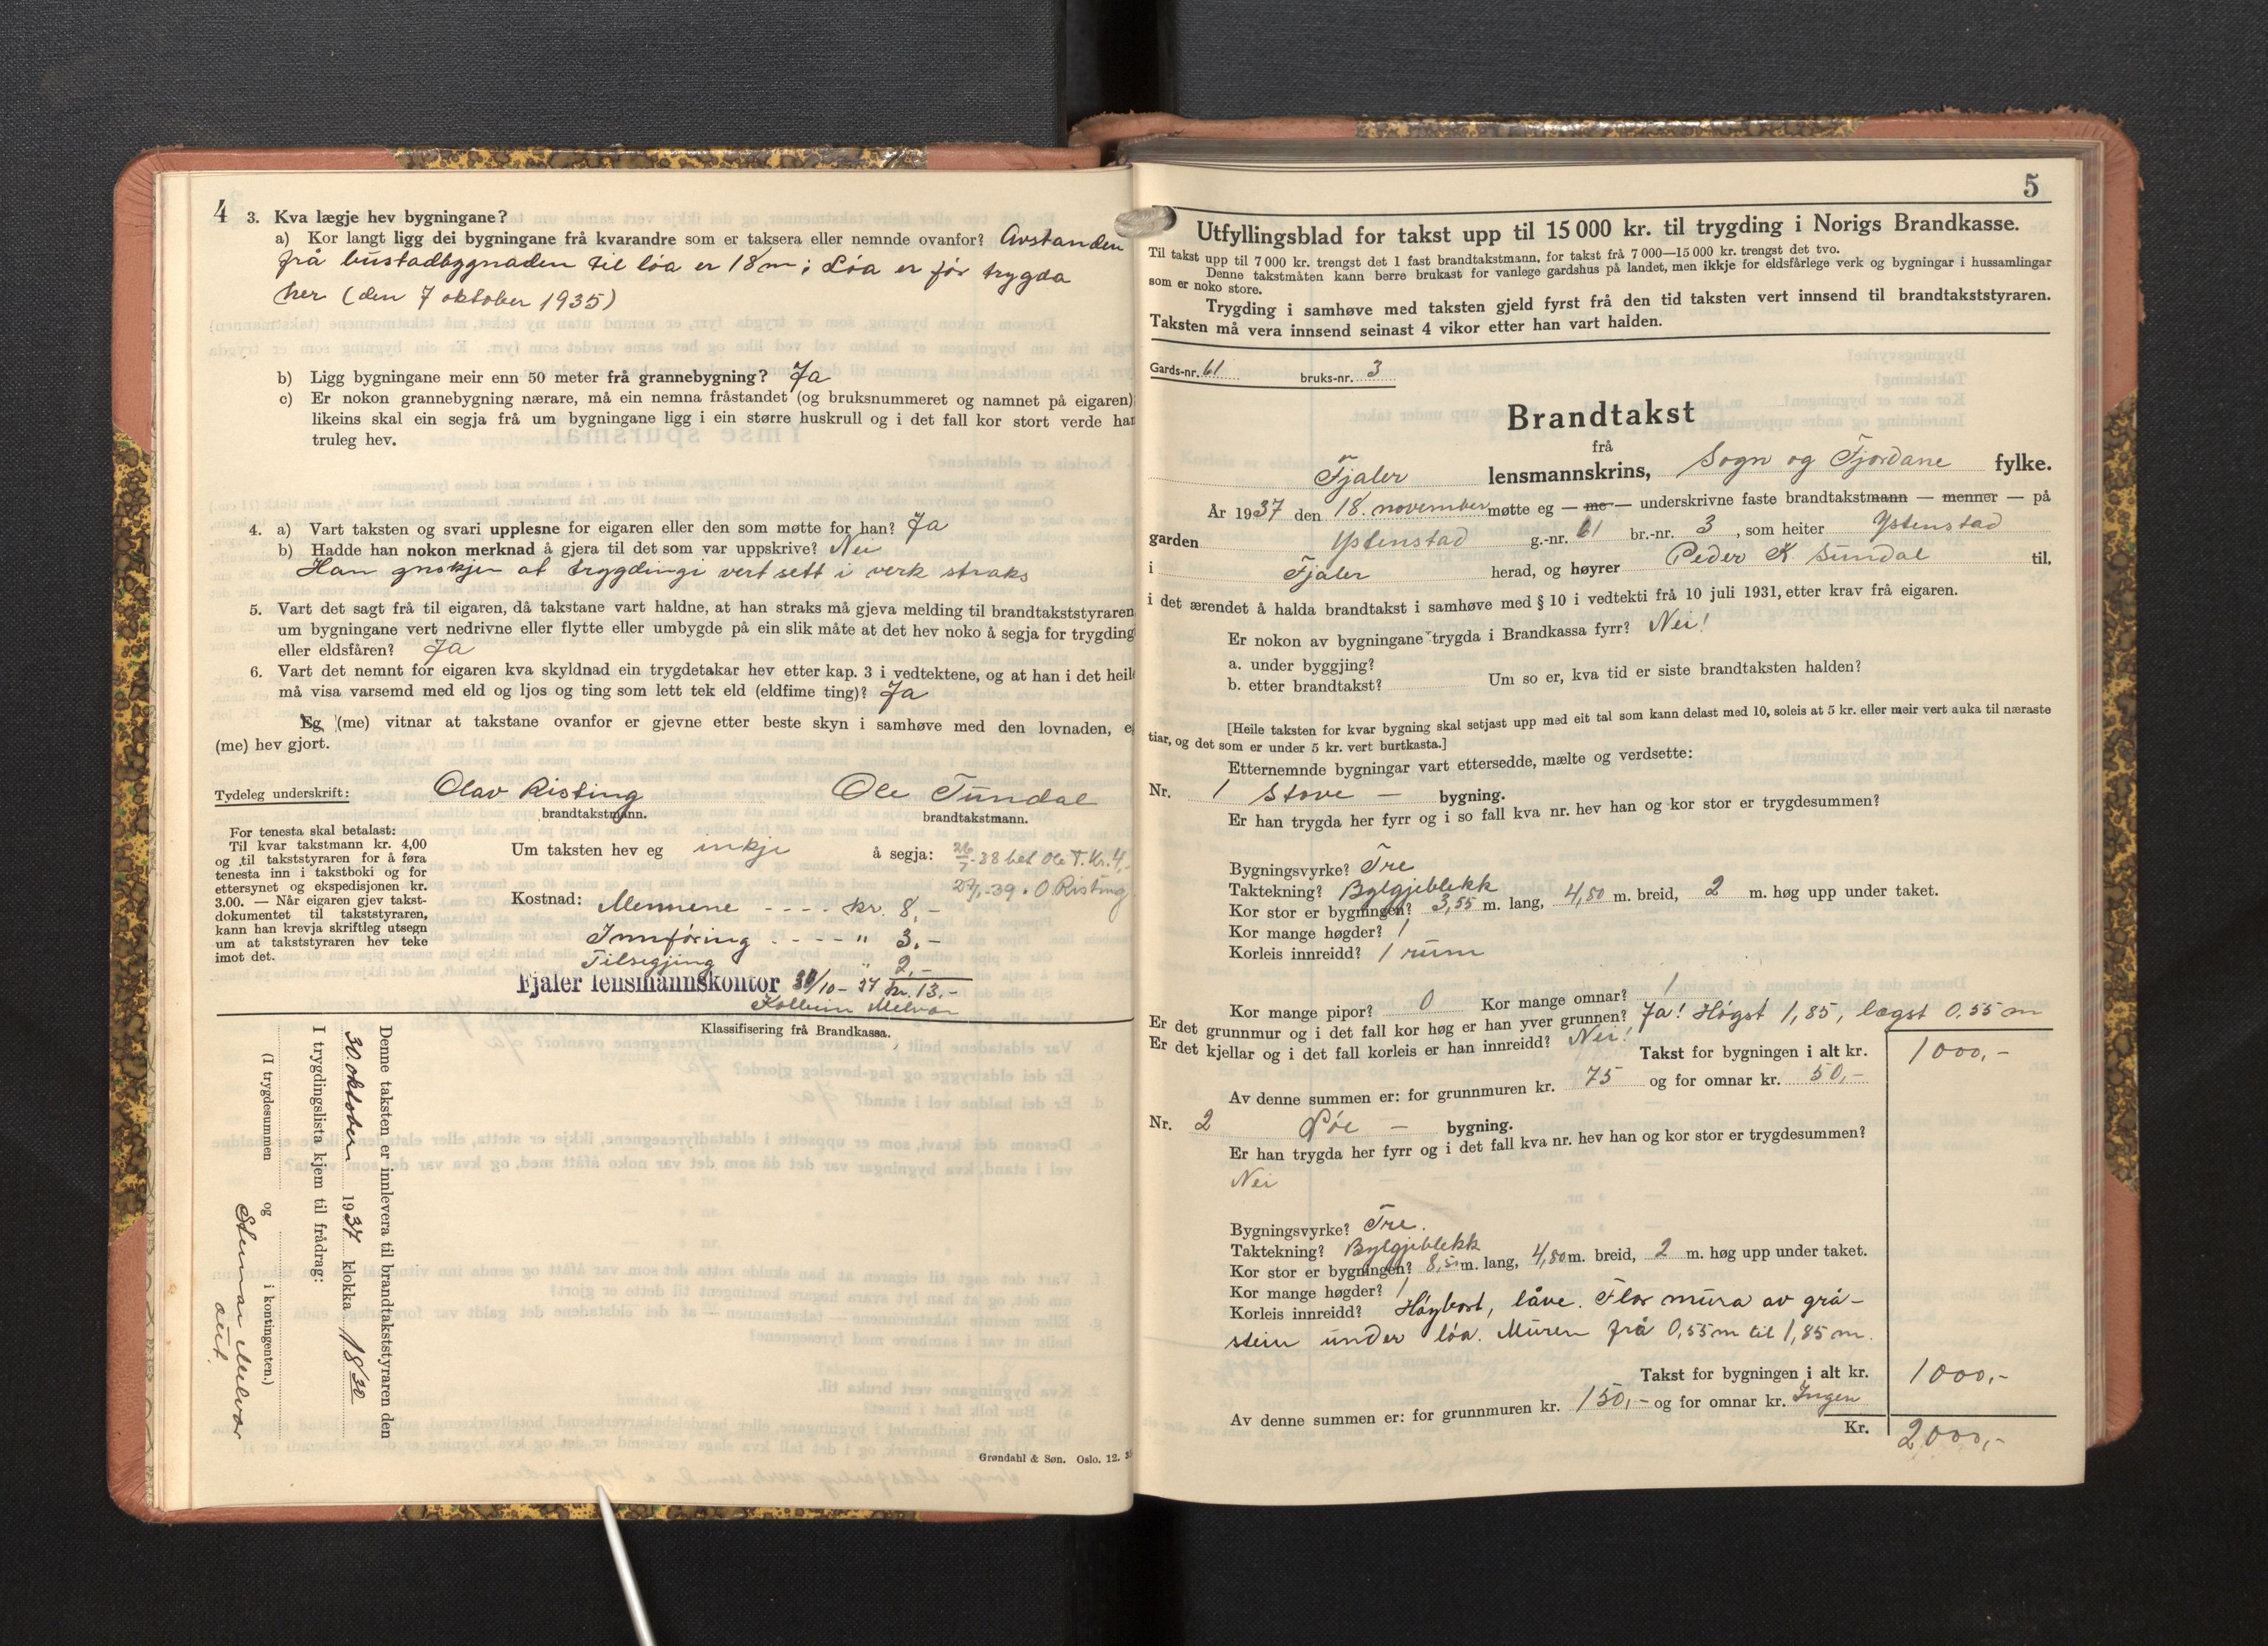 4
3. Kva lægje hev bygningane?
a) Kor langt ligg dei bygningane frå kvarandre som er taksera eller nemnde ovanfor? Avstanden
frå bustadbygnaden til løa er 18 m; Løa er før trygda
her (den 7 oktober 1935)
b) Ligg bygningane meir enn 50 meter frå grannebygning? Ja
c) Er nokon grannebygning nærare, må ein nemna fråstandet (og bruksnummeret og namnet på eigaren)
likeins skal ein segja frå um bygningane ligg i ein større huskrull og i det fall kor stort verde han
truleg hev.
4. a) Vart taksten og svari upplesne for eigaren eller den som møtte for han? Ja
b) Hadde han nokon merknad å gjera til det som var uppskrive? Nei
Han ynskjer at trygdingi vert sett i verk straks
5. Vart det sagt frå til eigaren, då takstane vart haldne, at han straks må gjeva melding til brandtakststyraren
um bygningane vert nedrivne eller flytte eller umbygde på ein slik måte at det hev noko å segja for trygding
eller eldsfåren? Ja
6. Vart det nemnt for eigaren kva skyldnad ein trygdetakar hev etter kap. 3 i vedtektene, og at han i det heile
må visa varsemd med eld og ljos og ting som lett tek eld (eldfime ting)? Ja
Eg (me) vitnar at takstane ovanfor er gjevne etter beste skyn i samhøve med den lovnaden, eg
(me) hev gjort.
Tydeleg underskrift: Olav Risting Ole Tundal
brandtakstmann. brandtakstmann.
For tenesta skal betalast:
Til kvar takstmann kr. 4,00
og til takststyraren for å føra
tenesta inn i takstboki og for
ettersynet og ekspedisjonen kr.
3.00. — Når eigaren gjev takst-
dokumentet til takststyraren,
kann han krevja skriftleg utsegn
um at takststyraren hev teke
imot det.
Um taksten hev eg inkje å segja: 26/7-38 bet Ole T. Kr. 4,-
-39 . O. Risting
Kostnad: Mennene - - - - kr. 8,-
Innføring - - - - " 3,-
Tilsegjing " 2,-
Fjaler lensmannskontor 30/10 - 37 kr. 13.-
Kolbein Melvær
Klassifisering frå Brandkassa.
Denne taksten er innlevera til brandtakststyraren den
30. oktober 1937 klokka 18 30
I trygdingslista kjem til frådrag:
(I trygdesummen og i kontingenten.)
Melvær
Grøndahl & Søn. Oslo. 12.
5
Utfyllingsblad for takst upp til 15 000 kr. til trygding i Norigs Brandkasse.
Til takst upp til 7 000 kr. trengst det 1 fast brandtakstmann, for takst frå 7 000—15 000 kr. trengst det tvo.
Denne takstmåten kann berre brukast for vanlege gardshus på landet, men ikkje for eldsfårlege verk og bygningar i hussamlingar
som er noko store.
Trygding i samhøve med taksten gjeld fyrst frå den tid taksten vert innsend til brandtakststyraren.
Taksten må vera innsend seinast 4 vikor etter han vart halden.
Gards-nr. 61 bruks-nr. 3
Brandtakst
frå
Fjaler lensmannskrins, Sogn og Fjordane fylke.
År 1937 den 18. november møtte eg — me — underskrivne faste brandtakstmann — menner — på
garden Ystenstad g.-nr. 61 br.-nr. 3, som heiter Ystenstad
i Fjaler herad, og høyrer Peder K. Sundal til,
i det ærendet å halda brandtakst i samhøve med § 10 i vedtekti frå 10 juli 1931, etter krav frå eigaren.
Er nokon av bygningane trygda i Brandkassa fyrr? Nei!
a. under byggjing?
b. etter brandtakst? Um so er, kva tid er siste brandtaksten halden?
[Heile taksten for kvar bygning skal setjast upp med eit tal som kann delast med 10, soleis at 5 kr. eller meir vert auka til næraste
tiar, og det som er under 5 kr. vert burtkasta.]
Etternemnde bygningar vart ettersedde, mælte og verdsette:
Nr. 1 Stove — bygning.
Er han trygda her fyrr og i so fall kva nr. hev han og kor stor er trygdesummen?
Bygningsvyrke? Tre
Taktekning? Bylgjeblekk
Kor stor er bygningen? 3,55 m. lang, 4,80 m. breid, 2 m. høg upp under taket.
Kor mange høgder? 1
Korleis innreidd? 1 rum
Kor mange pipor? 0 Kor mange omnar? 1
Er det grunnmur og i det fall kor høg er han yver grunnen? Ja! Høgst 1,85, lægst 0.55 m
Er det kjellar og i det fall korleis er han innreidd? Nei!
Takst for bygningen i alt kr. 1000,-
Av denne summen er: for grunnmuren kr. 75 og for omnar kr. 50,-
Nr. 2 Løe — bygning.
Er han trygda her fyrr og i det fall kva nr. hev han og kor stor er trygdesummen?
Nei
Bygningsvyrke? Tre.
Taktekning? Bylgjeblekk
Kor stor er bygningen? 8,5 m. lang, 4,80 m. breid, 2 m. høg upp under taket.
Kor mange høgder? 1
Korleis innreidd? Høybort, låve. Flor mura av grå-
stein under løa. Muren frå 0,55 m til 1,85 m.
Takst for bygningen i alt kr. 1000,-
Av denne summen er: for grunnmuren kr. 150,- og for omnar kr. Ingen
Kr. 2000,-